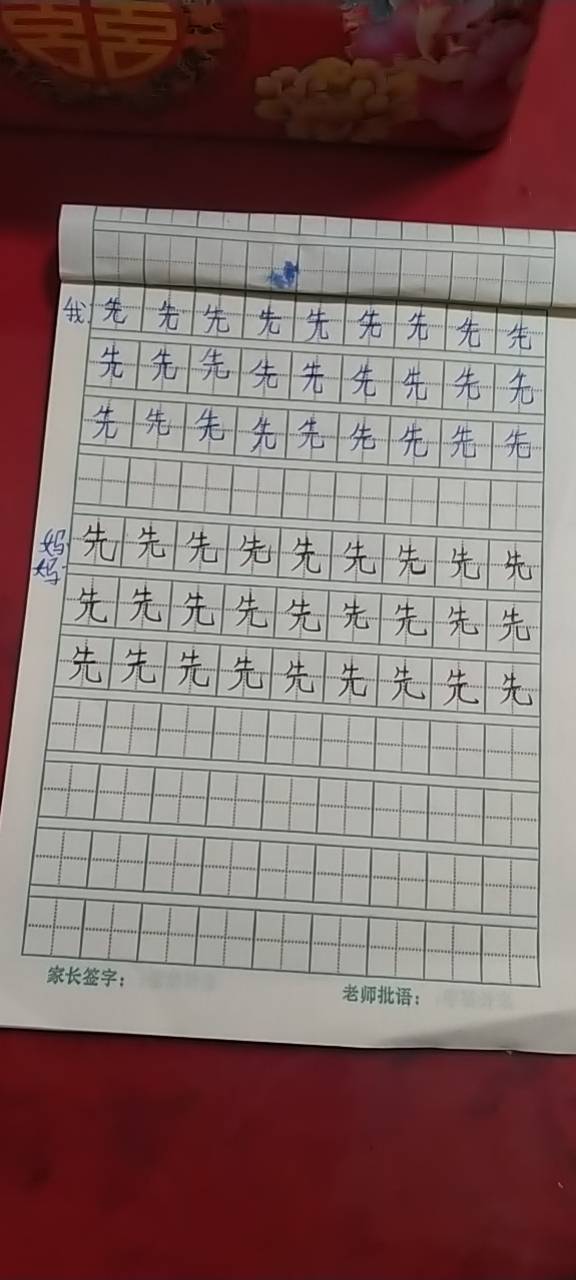 囍
我 先 先 先 先 先 先 先 先 先
先 先 先 先 先 先 先 先 先
先 先 先 先 先 先 先 先 先
妈妈 先 先 先 先 先 先 先 先 先
先 先 先 先 先 先 先 先 先
先 先 先 先 先 先 先 先 先
家长签字： 老师批语：